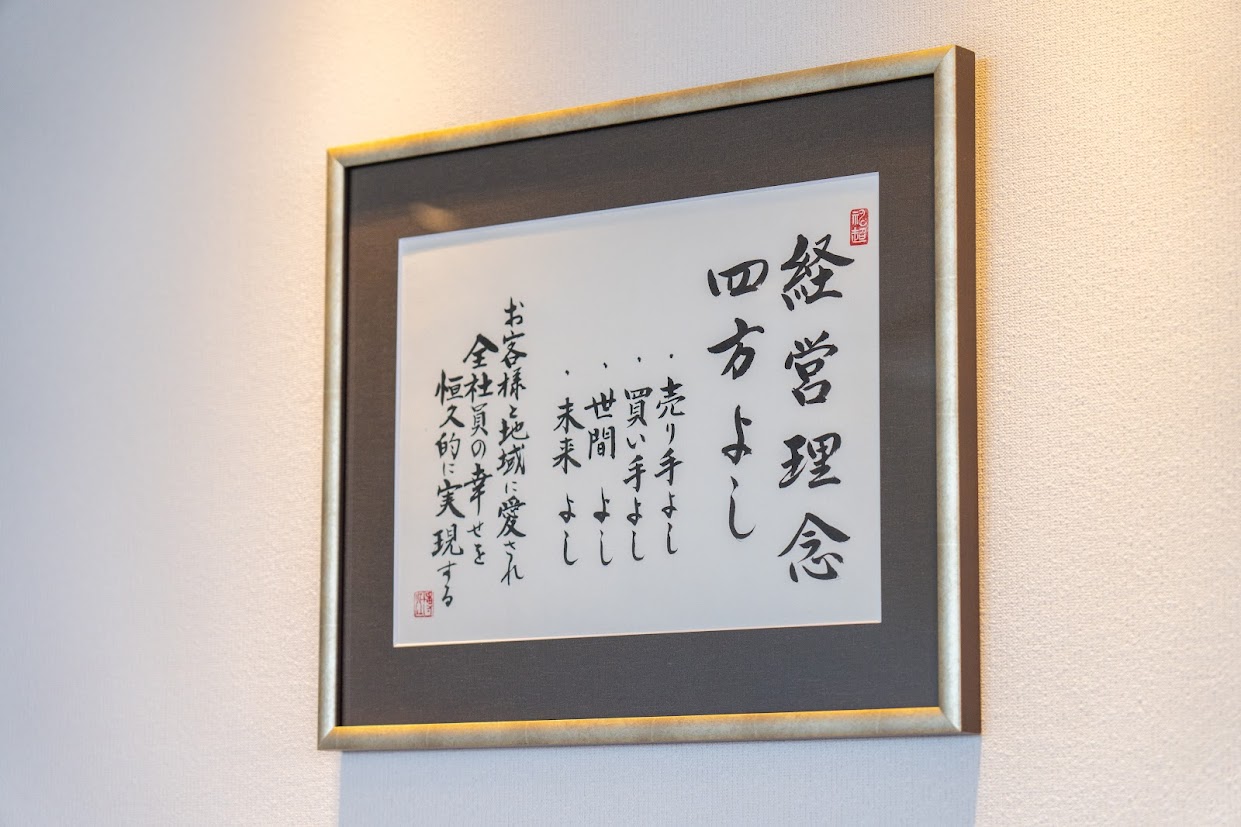 経営理念
四方よし
・売り手よし
・買い手よし
・世間よし
・未来よし
お客様と地域に愛され
全社員の幸せを
恒久的に実現する